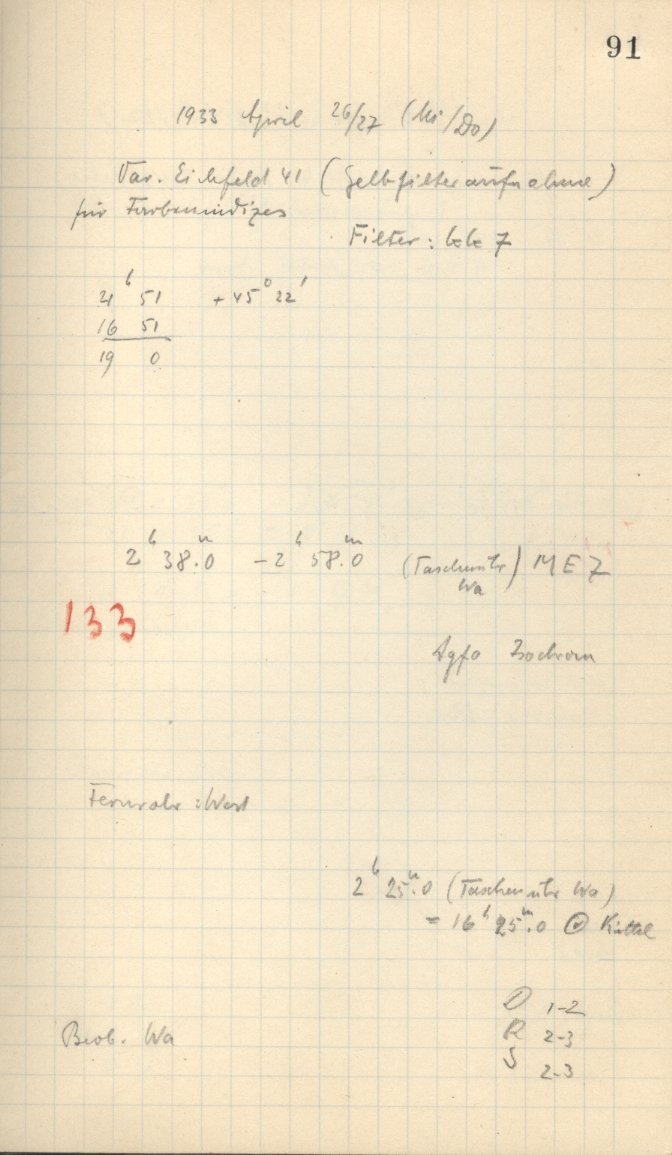 91
1933 April 26/27 (Mi/Do)
Var. Eichfeld 41 (Gelbfilteraufnahme)
für Farbenindizes
Filter: 7
21ʰ 51 +45° 22'
16 51
19 0
2ʰ 38ᵐ.0 – 2ʰ 58ᵐ.0 (Taschenuhr Wa) MEZ
133
Agfa Isochrom
Fernrohr: West
2ʰ 25ᵐ.0 (Taschenuhr Wa)
= 16ʰ 25ᵐ.0 ⊙ Kittel
D 1-2
R 2-3
S 2-3
Beob. Wa